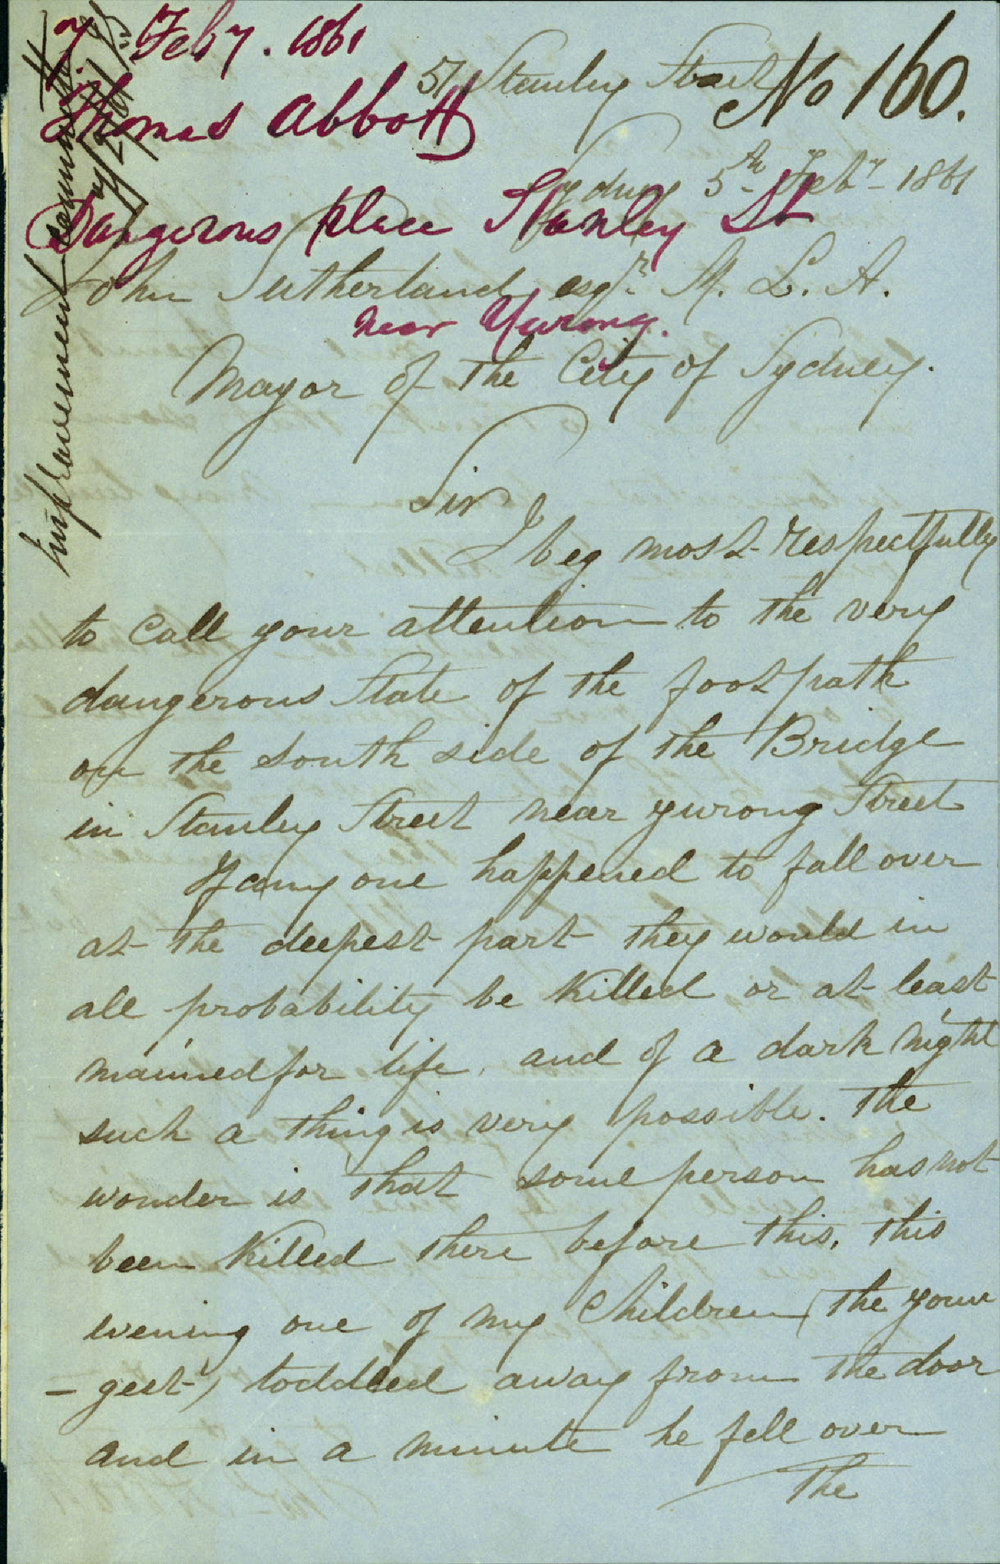 7 Feby. 1861
Thomas Abbott
Dangerous place Stanley St
near Yurong.
No 160.
Improvement Committee
57 Stanley Street
Sydney 5th Feby 1861
John Sutherland esqr. M. L. A.
Mayor of the City of Sydney.
Sir
I beg most respectfully
to call your attention to the very
dangerous State of the footpath
on the South side of the Bridge
in Stanley Street near yurong Street
If any one happened to fall over
at the deepest part they would in
all probability be Killed or at least
maimed for life, and of a dark night
such a thing is very possible. The
wonder is that some person has not
been Killed there before this, this
evening one of my Children (the youn
-gest) toddled away from the door
and in a minute he fell over
The